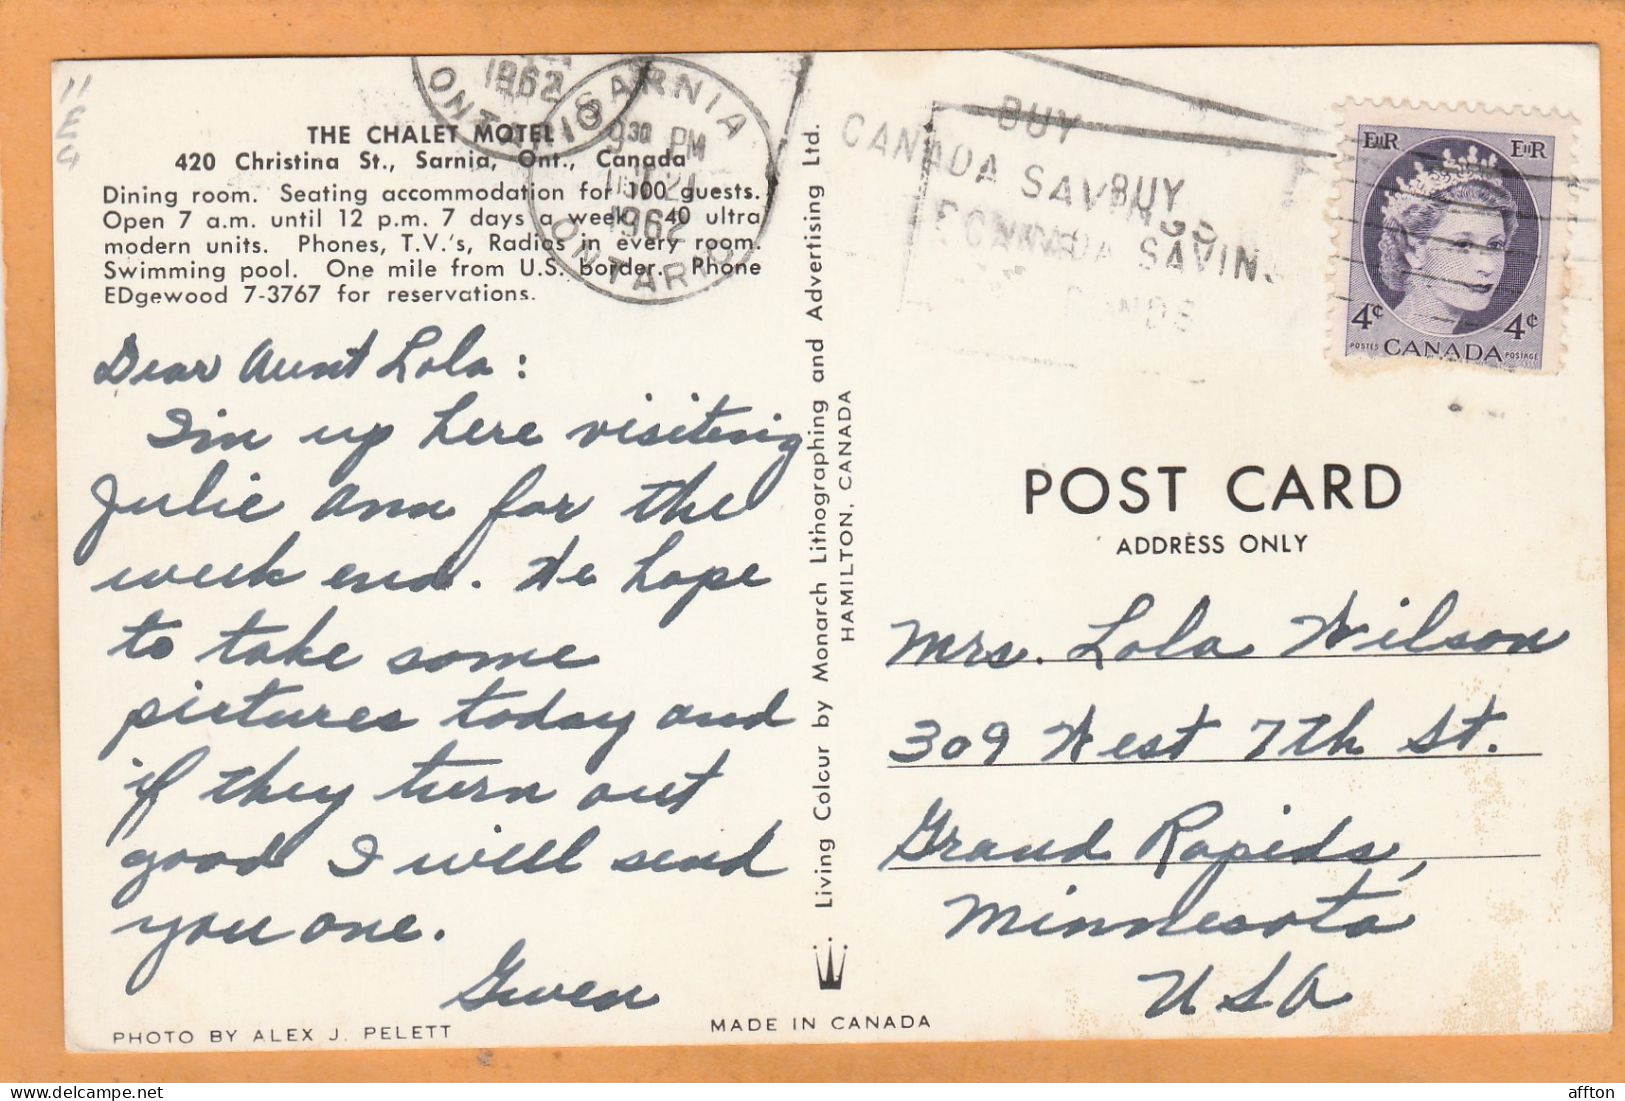 11
E
9
1962
ONTARIO
SARNIA
9 30 PM
1962
ONTARIO
BUY
CANADA SAVINGS
BUY
CANADA SAVINGS
BONDS
EIIR EIIR
4¢ 4¢
POSTES CANADA POSTAGE
THE CHALET MOTEL
420 Christina St., Sarnia, Ont., Canada
Dining room. Seating accommodation for 100 guests.
Open 7 a.m. until 12 p.m. 7 days a week. 40 ultra
modern units. Phones, T.V.'s, Radios in every room.
Swimming pool. One mile from U.S. border. Phone
EDgewood 7-3767 for reservations.
Dear Aunt Lola:
I'm up here visiting
Julie Ann for the
week end. We hope
to take some
pictures today and
if they turn out
good I will send
you one.
Gwen
PHOTO BY ALEX J. PELETT
MADE IN CANADA
Living Colour by Monarch Lithographing and Advertising Ltd.
HAMILTON, CANADA
POST CARD
ADDRESS ONLY
Mrs. Lola Wilson
309 West 7th St.
Grand Rapids,
Minnesota
USA
affton